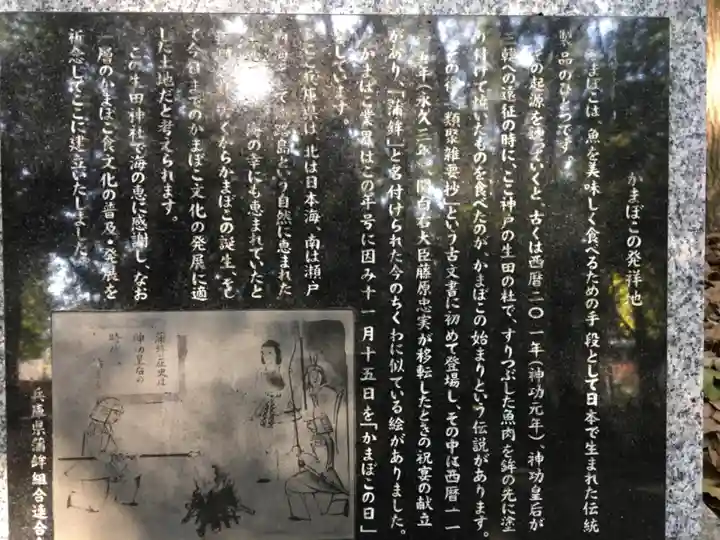 かまぼこの発祥地
かまぼこは、魚を美味しく食べるための手段として日本で生まれた伝統
製品のひとつです。
の起源を辿っていくと、古くは西暦二〇一年(神功元年)、神功皇后が
三韓への遠征の時に、ここ神戸の生田の杜で、すりつぶした魚肉を鉾の先に塗
り付けて焼いたものを食べたのが、かまぼこの始まりという伝説があります。
その後、「類聚雑要抄」という古文書に初めて登場し、その中に西暦一一
五年(永久三年)、関白右大臣藤原忠実が移転したときの祝宴の献立
があり、「蒲鉾」と名付けられた今のちくわに似ている絵がありました。
かまぼこ業界はこの年号に因み十一月十五日を「かまぼこの日」
としています。
ここ兵庫県は、北は日本海、南は瀬戸
路島という自然に恵まれた
海の幸にも恵まれていたと
くからかまぼこの誕生、そし
て今日までのかまぼこ文化の発展に適
した土地だと考えられます。
この生田神社で海の恵に感謝し、なお
一層のかまぼこ食文化の普及・発展を
祈念してここに建立いたしました。
兵庫県蒲鉾組合連合
蒲鉾歴史は
神功皇后の
時代